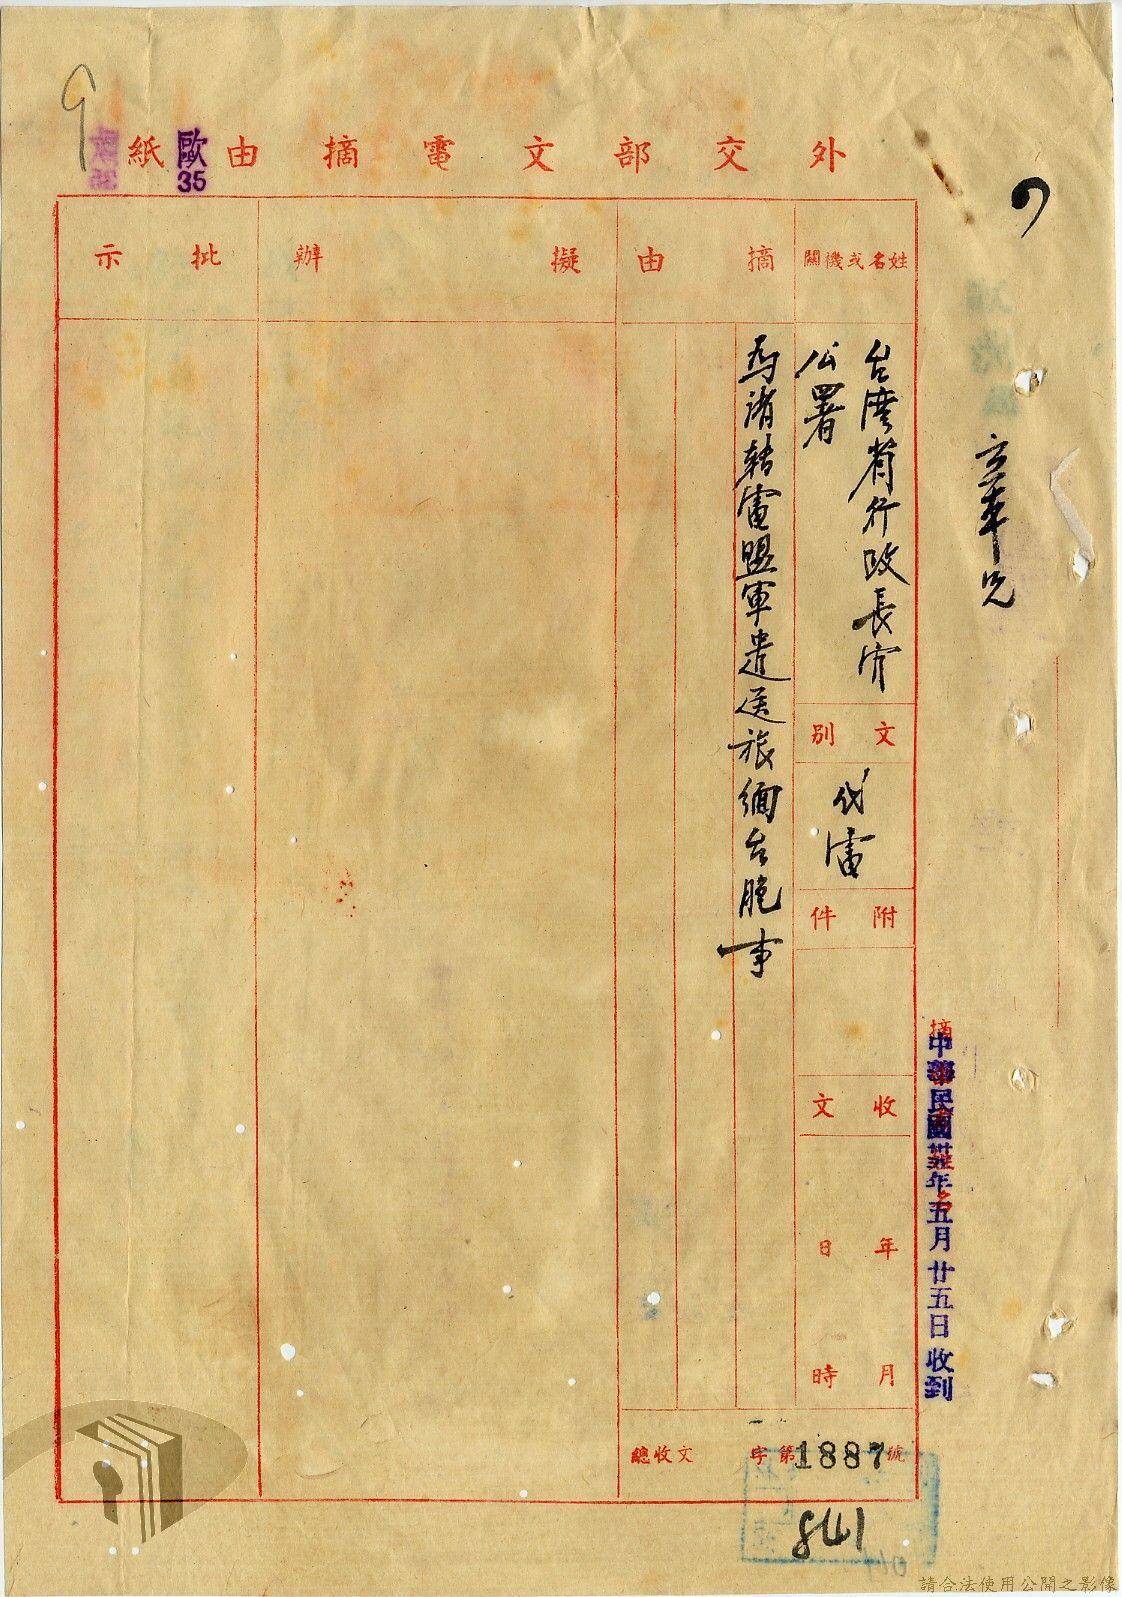 外交部文電摘由紙
歐
35
姓名或機關
摘由
擬辦
批示
台灣省行政長官
公署
文別
代電
附件
收文
年
月
日
時
為請轉電盟軍遣送旅緬台胞事
總收文
字第1887號
841
中華民國卅五年五月廿五日收到
請合法使用公開之影像